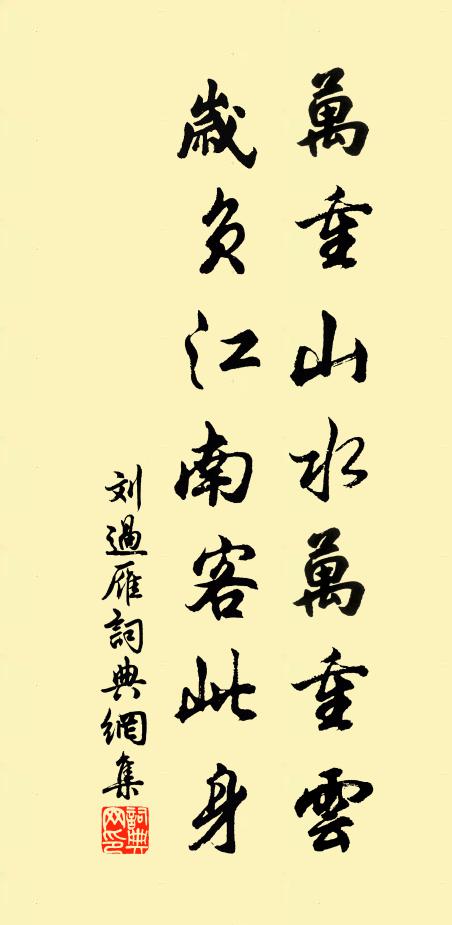 萬重山水萬重雲
歲負江南客此身
刘過雁詞典網集
詞典网印